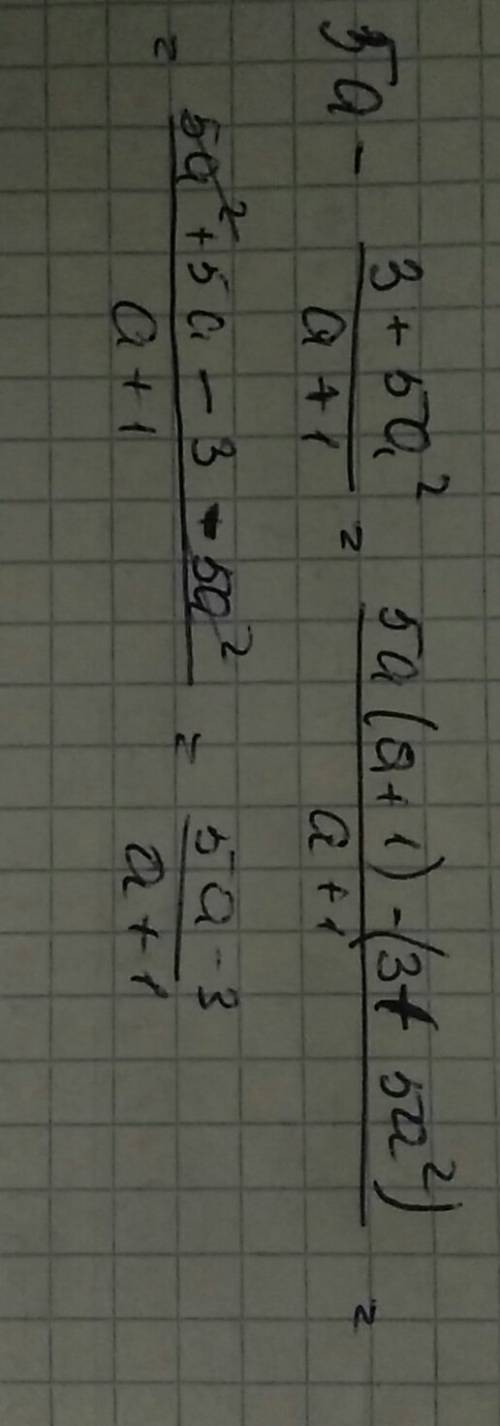 5a - (3 + 5a²)/(a + 1) = (5a(a + 1) - (3 + 5a²))/(a + 1) =
= (5a² + 5a - 3 - 5a²)/(a + 1) = (5a - 3)/(a + 1)